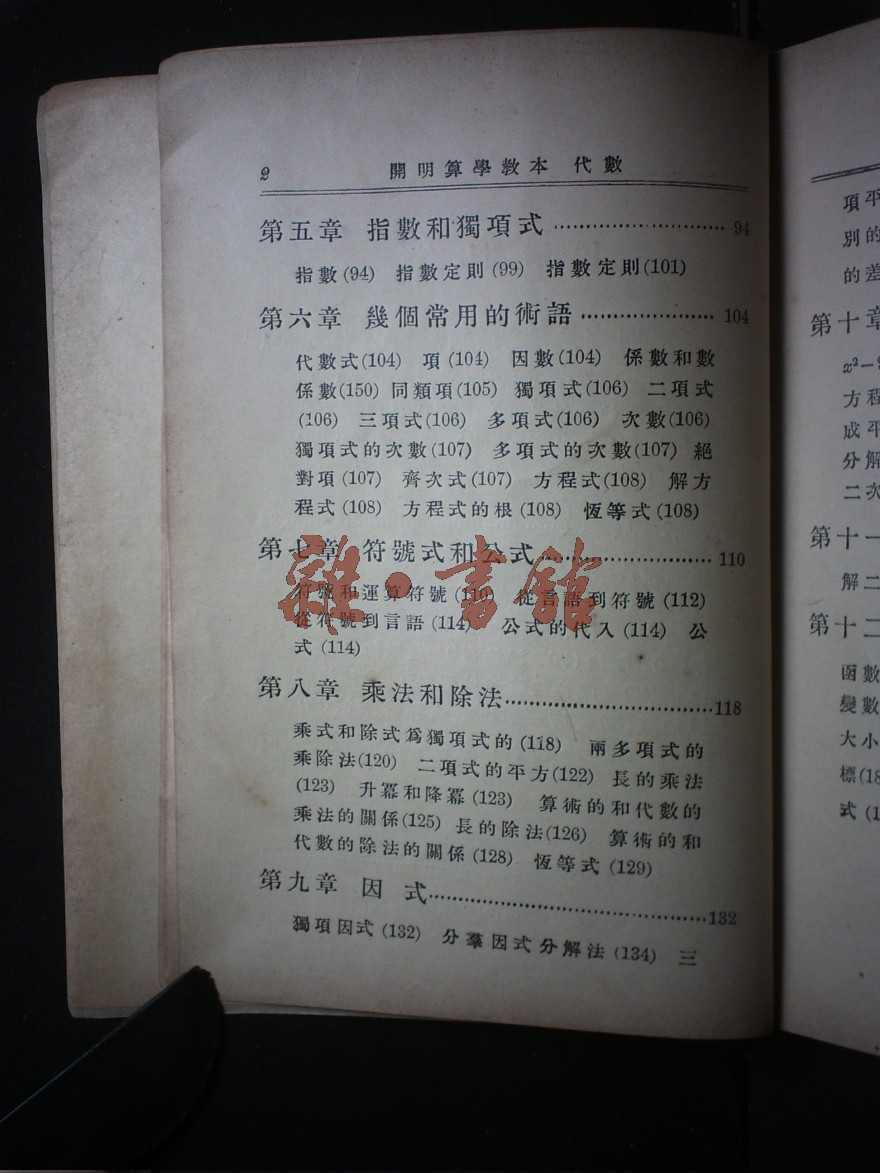 2 開明算學教本 代數
第五章 指數和獨項式 ························ 94
指數(94) 指數定則(99) 指數定則(101)
第六章 幾個常用的術語 ·················· 104
代數式(104) 項(104) 因數(104) 係數和數
係數(150) 同類項(105) 獨項式(106) 二項式
(106) 三項式(106) 多項式(106) 次數(106)
獨項式的次數(107) 多項式的次數(107) 絕
對項(107) 齊次式(107) 方程式(108) 解方
程式(108) 方程式的根(108) 恆等式(108)
第七章 符號式和公式 ························ 110
符號和運算符號(110) 從言語到符號(112)
從符號到言語(114) 公式的代入(114) 公
式(114)
雜·書館
第八章 乘法和除法 ······························ 118
乘式和除式爲獨項式的(118) 兩多項式的
乘除法(120) 二項式的平方(122) 長的乘法
(123) 升冪和降冪(123) 算術的和代數的
乘法的關係(125) 長的除法(126) 算術的和
代數的除法的關係(128) 恆等式(129)
第九章 因 式 ········································ 132
獨項因式(132) 分羣因式分解法(134) 三
項平
別的
的差
第十章
方程
成平
分解
二次
第十一
解二
第十二
函數
變數
大小
標(18
式(1